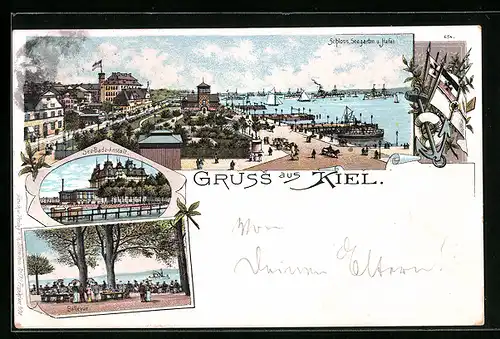 Schloss, Seegarten u. Hafen
See-Bade-Anstalt
GRUSS aus KIEL.
Bellevue
Von
Deinen Eltern!